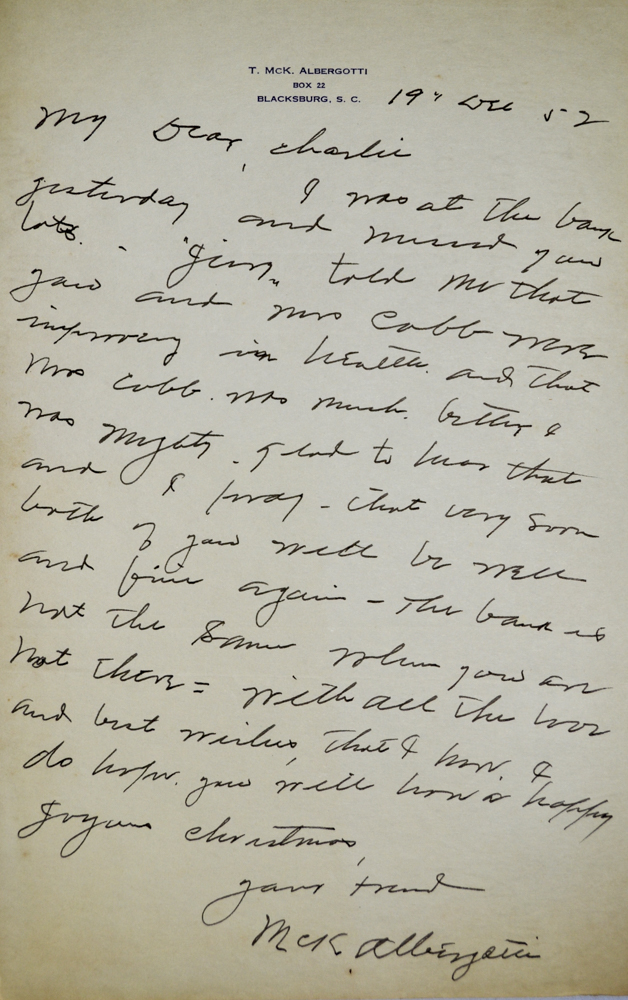 T. McK. ALBERGOTTI
BOX 22
BLACKSBURG, S. C.
19" Dec 52
My Dear Charlie
I was at the bank
yesterday and missed you
lots. - "Jim" told me that
you and Mrs Cobb were
improving in health and that
Mrs Cobb was much better I
was mighty glad to hear that
and I pray - that very soon
both of you will be well
and fine again - The bank is
not the same when you are
not there = with all the love
and best wishes that I have I
do hope you will have a happy
Joyous Christmas
your friend
McK. Albergotti